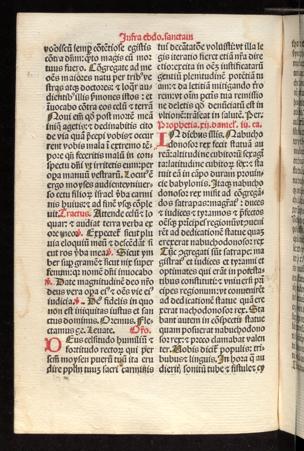 Infra ebdo. sanctam
vobiscū semꝑ cōtētiose egistis
cōtra dn̄m: qͣto magis cū mor
tuus fuero. Cōgregate ad me
oēs maiores natu per tribꝰ ve
stras atqꝫ doctores: ⁊ loqͣr au
dientibꝰ illis ẜmones istos: ⁊
īuocabo cōtra eos celū ⁊ terrā
Noui em̄ qꝙ post mortē meā
iniq̄ agetis: ⁊ declinabitis cito
de via quā p̄cepi vobis: ⁊ occur
rent vobis mala ī extremo tē
pore: qn̄ feceritis malū in cons
pectu dn̄i: vt irritetis eum per
opa manuū vestrarū. Locutꝰ ē
ergo moyses audiente vniuer
so cetu filiorū israel: ꝟba carmi
nis huius: ⁊ ad finē vsqꝫ cōple
uit. Tractus. Attende celū: ⁊ lo
quar: ⁊ audiat terra verba ex
ore meo. ℣. Expectet̄ sicut plu
uia eloquiū meū: ⁊ descēdāt si
cut ros ꝟba mea. ℣. Sicut ym
ber sup gramē: ⁊ sicut nix super
fenum: qꝛ nomē dn̄i inuocabo
℣. Date magnitudinē deo nr̄o
deus vera opa eiꝰ: ⁊ oēs vie eiꝰ
iudicia. ℣. Deꝰ fidelis in quo
non est iniquitas: iustus et san
ctus dominus. Oremus. Fle
ctamus ge. Leuate. Oro̅.
Deus celsitudo humiliū ⁊
fortitudo rectorū qui per
sctm̄ moysen pueRū tuū ita eru
dire pplm̄ tuuȝ sacri carminis
tui decātatōe voluisti: vt illa le
gis iteratio fieret etiā nr̄a dire
ctio: excita in oēȝ iustificatarū
gentiū plenitudinē potētiā tu
am: ⁊ da letitiā mitigando ter
rorem: vt oīm petīs tua remissio
ne deletis qꝙ denūciatū est in
vltionē: trāseat in salutē. Per.
Prophetia. xij. daniel'. iij. ca.
In diebus illis. Nabucho
donosor rex fecit statuā au
reā: altitudine cubitorū sexagī
ta: latitudine cubitorū sex: ⁊ sta
tuit eā in cāpo duram prouin
cie babylonis. Itaqꝫ nabucho
donosor rex misit ad cōgregā
dos satrapas: magr̄atꝰ: duces
⁊ iudices ⁊ tyrannos ⁊ p̄fectos
oēsqꝫ p̄ncipes regionū: vt ꝯueni
rēt ad dedicationē statue quaȝ
erexerat nabuchodonosor rex
Tūc ꝯgregati sūt satrape: ma
gistratꝰ et iudices et tyanni et
optimates qui erāt in potesta-
tibus constituti: ⁊ vniuersi prin
cipes regionum: vt conuenirēt
ad dedicationē statue quā ere
xerat nachodonosor rex. Sta
bant autem in cōspectu statue
quam posuerat nabuchodono
sor rex: ⁊ preco clamabat valen
ter. Vobis dicit̄ populis: tri-
bubus: ⁊ linguis. In hora q̄ au
dieritȝ sonitū tube ⁊ fistule: ⁊